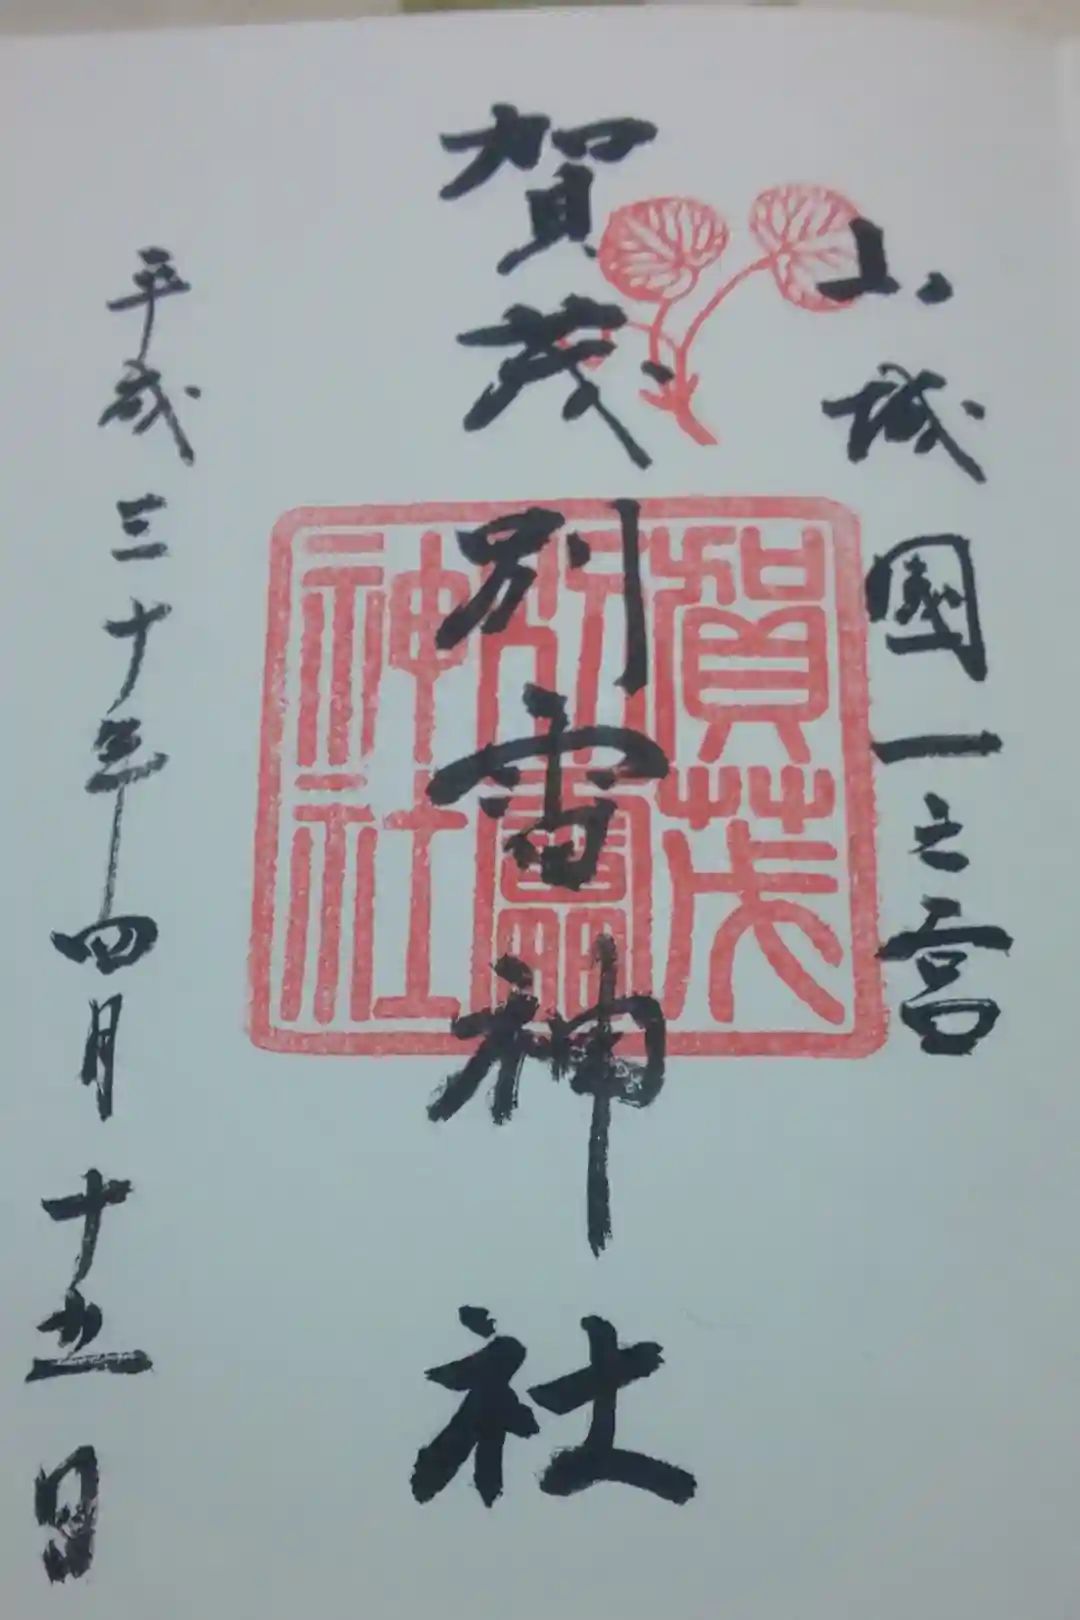 山城國一之宮
賀茂別雷神社
賀茂
別雷
神社
平成三十年四月十五日